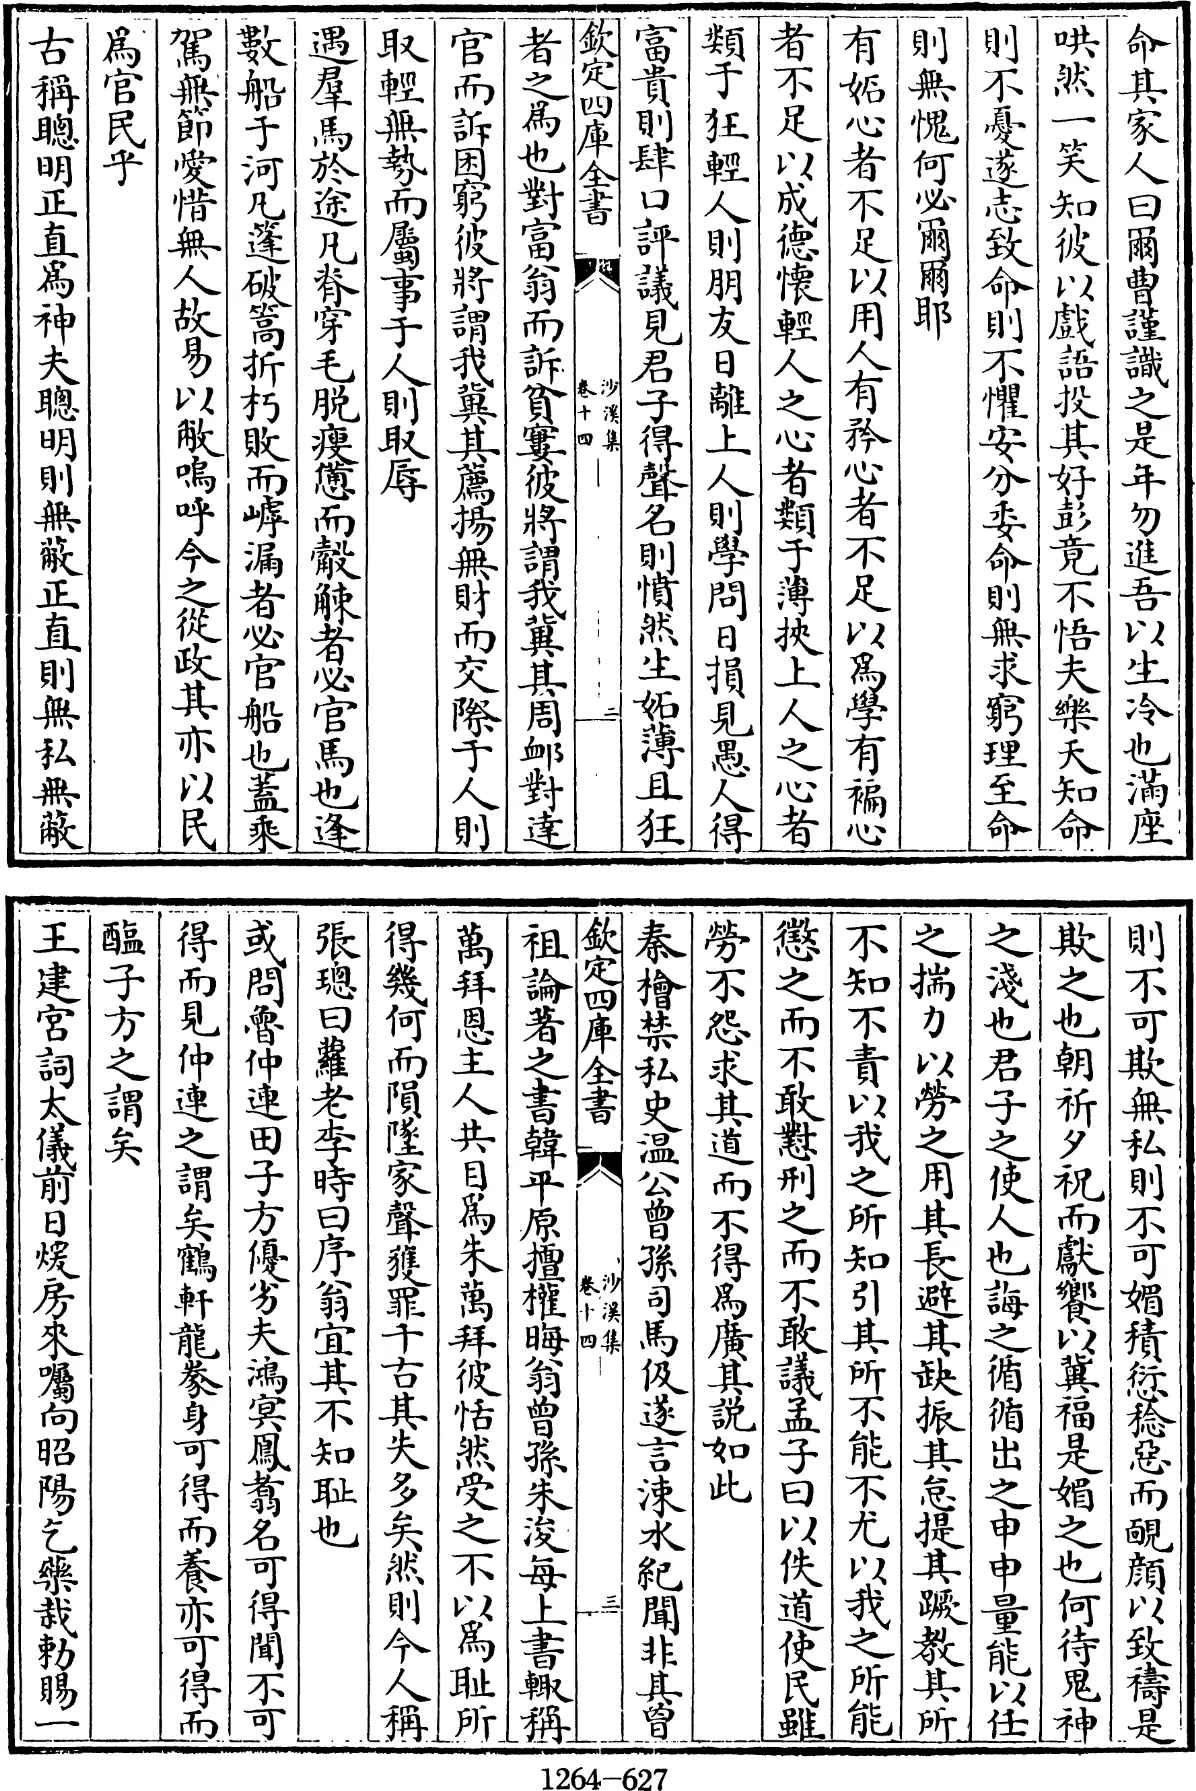 命其家人曰爾曹謹識之是年勿進吾以生冷也滿座
哄然一笑知彼以戲語投其好彭竟不悟夫樂天知命
則不憂遂志致命則不懼安分委命則無求窮理至命
則無愧何必爾爾耶
有妬心者不足以用人有矜心者不足以爲學有褊心
者不足以成德懷輕人之心者類于薄挾上人之心者
類于狂輕人則朋友日離上人則學問日損見愚人得
富貴則肆口評議見君子得聲名則憤然生妬薄且狂
欽定四庫全書
沙溪集
卷十四
二
者之爲也對富翁而訴貧窶彼將謂我冀其周卹對達
官而訴困窮彼將謂我冀其薦揚無財而交際于人則
取輕無勢而屬事于人則取辱
遇羣馬於途凡脊穿毛脱瘦憊而觳觫者必官馬也逢
數船于河凡篷破篙折朽敗而罅漏者必官船也蓋乘
駕無節愛惜無人故易以敝嗚呼今之從政其亦以民
爲官民乎
古稱聰明正直爲神夫聰明則無蔽正直則無私無蔽
則不可欺無私則不可媚積愆稔惡而靦顔以致禱是
欺之也朝祈夕祝而獻饗以冀福是媚之也何待鬼神
之淺也君子之使人也誨之循循出之申申量能以任
之揣力以勞之用其長避其缺振其怠提其蹶教其所
不知不責以我之所知引其所不能不尤以我之所能
懲之而不敢懟刑之而不敢議孟子曰以佚道使民雖
勞不怨求其道而不得爲廣其説如此
秦檜禁私史温公曾孫司馬伋遂言涑水紀聞非其曾
欽定四庫全書
沙溪集
卷十四
三
祖論著之書韓平原擅權晦翁曾孫朱浚每上書輙稱
萬拜恩主人共目爲朱萬拜彼恬然受之不以爲耻所
得幾何而隕墜家聲獲罪千古其失多矣然則今人稱
張璁曰蘿老李時曰序翁宜其不知耻也
或問魯仲連田子方優劣夫鴻冥鳳翥名可得聞不可
得而見仲連之謂矣鶴軒龍豢身可得而養亦可得而
醢子方之謂矣
王建宮詞太儀前日煖房來囑向昭陽乞藥栽勅賜一
1264—627